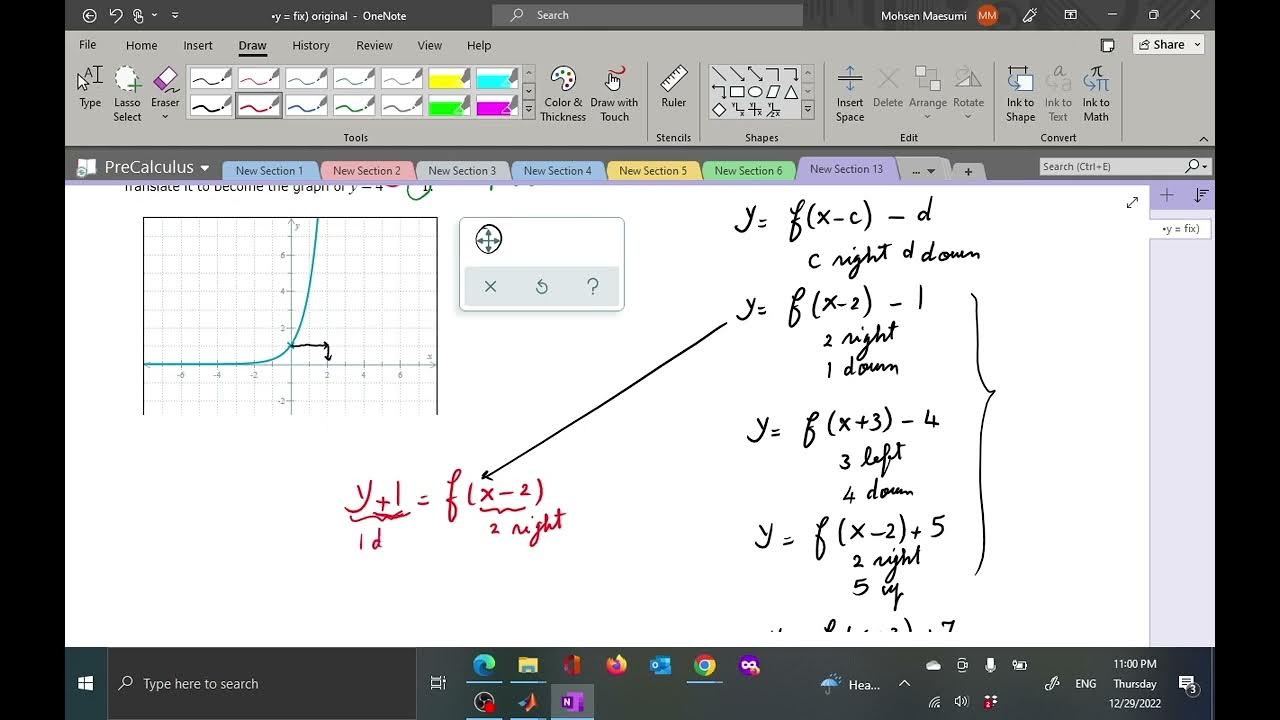 •y = fix) original - OneNote
Search
Mohsen Maesumi MM
File Home Insert Draw History Review View Help
Share
Type
Lasso Select
Eraser
Color & Thickness
Draw with Touch
Ruler
Insert Space
Delete
Arrange
Rotate
Ink to Shape
Ink to Text
Ink to Math
Tools Stencils Shapes Edit Convert
PreCalculus New Section 1 New Section 2 New Section 3 New Section 4 New Section 5 New Section 6 New Section 13 ... + Search (Ctrl+E)
Translate it to become the graph of y = 4
•y = fix)
y
6
4
2
x
-6 -4 -2 2 4 6
-2
× ?
y = f(x-c) - d
c right d down
y = f(x-2) - 1
2 right
1 down
y = f(x+3) - 4
3 left
4 down
y+1 = f(x-2)
1 d 2 right
y = f(x-2) + 5
2 right
5 up
Type here to search
Hea...
ENG
11:00 PM
Thursday
12/29/2022
3
2